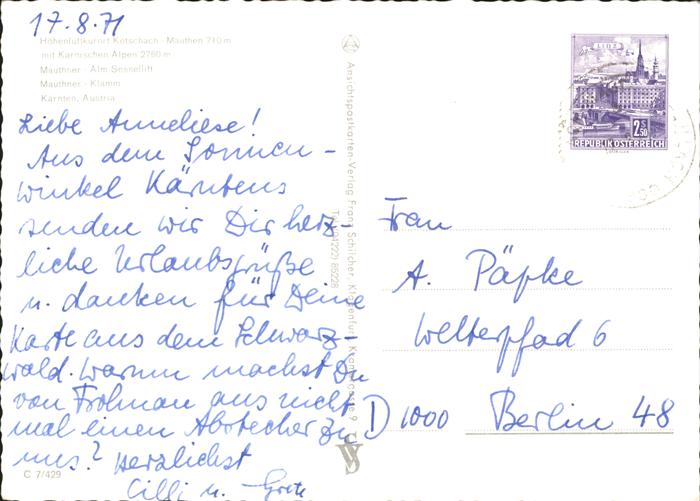 17.8.71
Höhenluftkurort Kötschach - Mauthen 710 m
mit Karnischen Alpen 2760 m
Mauthner - Alm Sessellift
Mauthner - Klamm
Kärnten, Austria
Liebe Anneliese!
Aus dem Sonnen-
winkel Kärntens
senden wir Dir herz-
liche Urlaubsgrüße
u. danken für Deine
Karte aus dem Schwarz-
wald. Warum machst Du
von Frohnau aus nicht
mal einen Abstecher zu
uns? Herzlichst
Cilli u. Grete
C 7/429
Ansichtspostkarten-Verlag Franz Schilcher, Klagenfurt
LINZ
2.50
S
REPUBLIK ÖSTERREICH
Frau
A. Päpke
Welterpfad 6
D 1000 Berlin 48